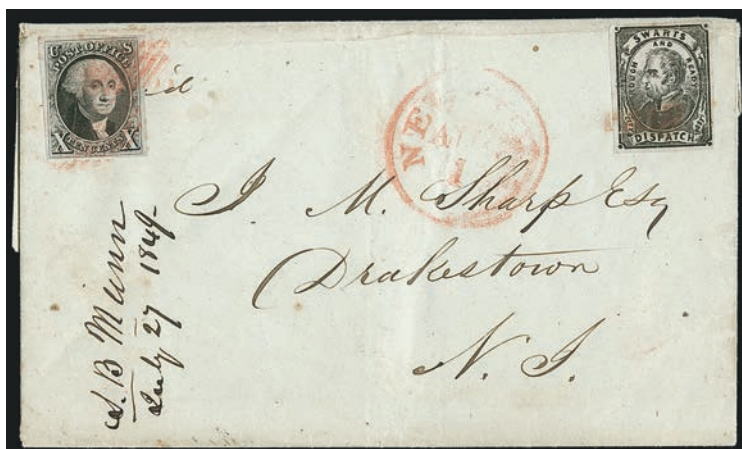 U S
POST OFFICE
X TEN CENTS X
SWARTS
AND
ROUGH READY
DISPATCH
NEW
AU
1
J. M. Sharp Esq
Drakestown
N. J.
S. B Munn
July 27 1849